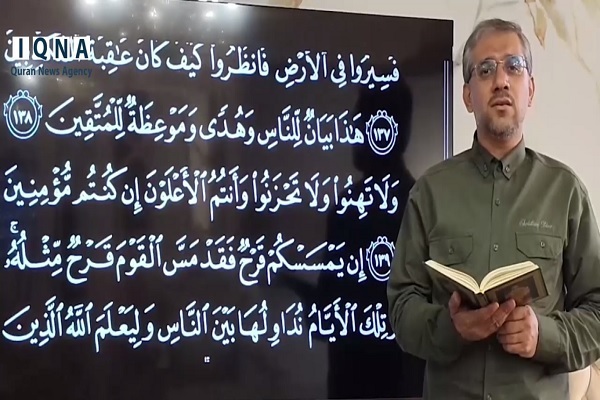 IQNA
Quran News Agency
فَسِيرُوا فِي ٱلۡأَرۡضِ فَٱنظُرُوا۟ كَيۡفَ كَانَ عَٰقِبَةُ
١٣٧ هَٰذَا بَيَانٌ لِّلنَّاسِ وَهُدًى وَمَوۡعِظَةٌ لِّلۡمُتَّقِينَ ١٣٨
وَلَا تَهِنُوا۟ وَلَا تَحۡزَنُوا۟ وَأَنتُمُ ٱلۡأَعۡلَوۡنَ إِن كُنتُم مُّؤۡمِنِينَ
١٣٩ إِن يَمۡسَسۡكُمۡ قَرۡحٌ فَقَدۡ مَسَّ ٱلۡقَوۡمَ قَرۡحٌ مِّثۡلُهُۥۚ
وَتِلۡكَ ٱلۡأَيَّامُ نُدَاوِلُهَا بَيۡنَ ٱلنَّاسِ وَلِيَعۡلَمَ ٱللَّهُ ٱلَّذِينَ